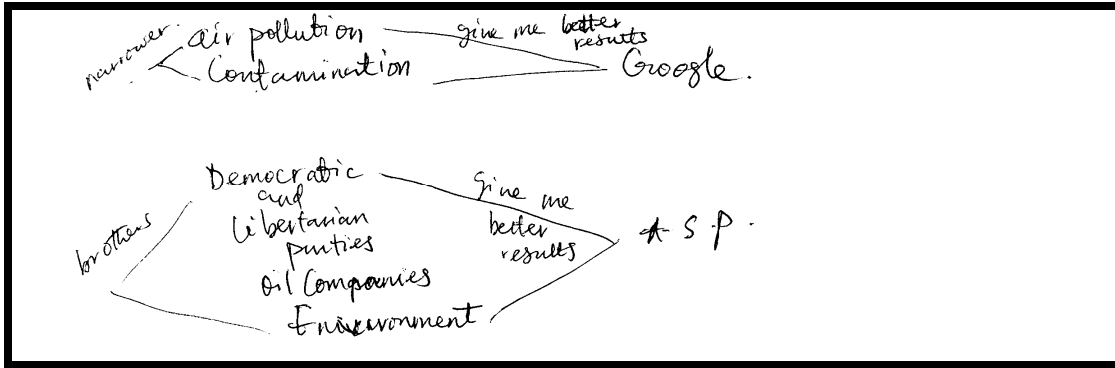 narrower.
air pollution
Contamination
give me better
results
Google.
brothers
Democratic
and
libertarian
parties
oil Companies
Environment
give me
better
results
A S P.